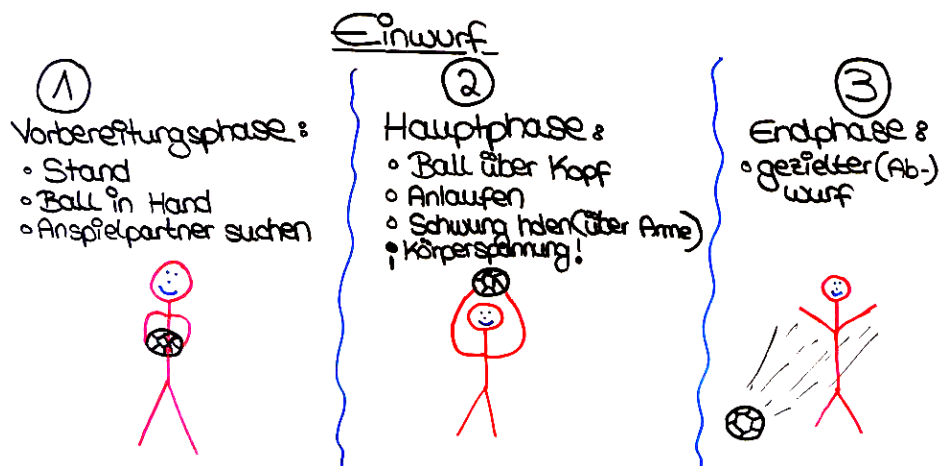 Einwurf
1
Vorbereitungsphase:
• Stand
• Ball in Hand
• Anspielpartner suchen
2
Hauptphase:
• Ball über Kopf
• Anlaufen
• Schwung holen (über Arme)
¡ Körperspannung!
3
Endphase:
• gezielter (Ab-)
wurf